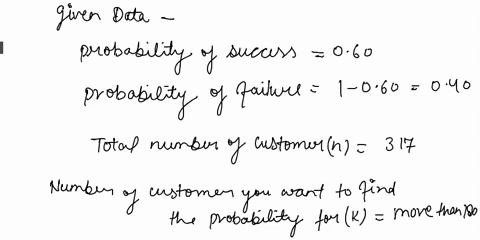 given Data -
probability of success = 0.60
probability of failure = 1-0.60 = 0.40
Total number of customer(n) = 317
Number of customer you want to find
the probability for (K) = more than